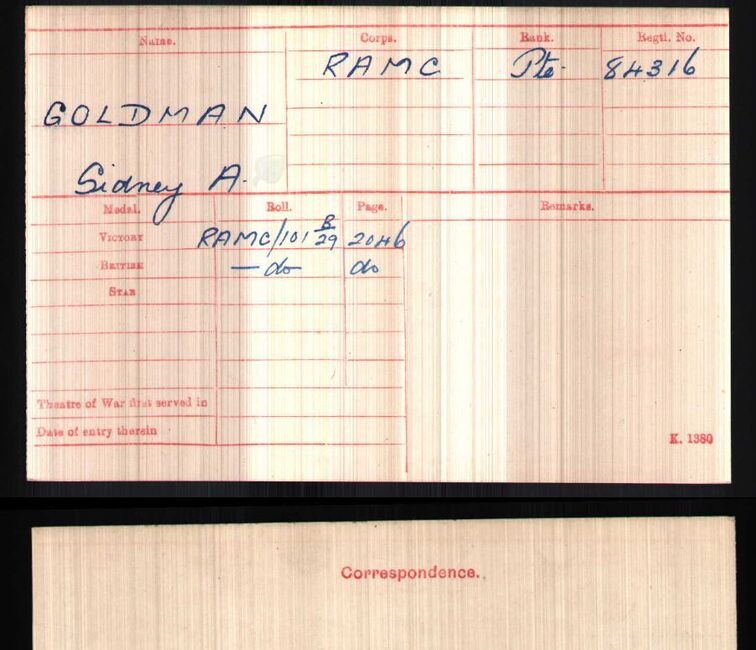 Name. Corps. Rank. Regtl. No.
RAMC Pte. 84316
GOLDMAN
Sidney A.
Medal. Roll. Page. Remarks.
VICTORY RAMC/101 B/29 2046
BRITISH — do do
STAR
Theatre of War first served in
Date of entry therein
K. 1380
Correspondence.